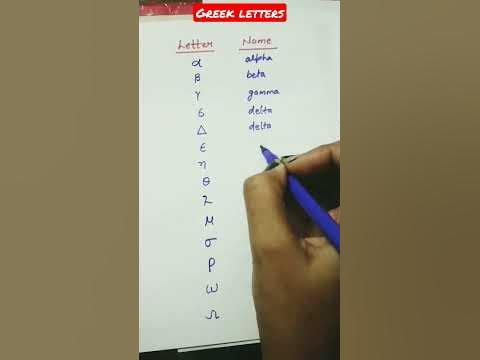 GREEK LETTERS
Letter Name
α alpha
β beta
γ gamma
δ delta
Δ delta
ϵ
η
θ
λ
μ
σ
ρ
ω
Ω